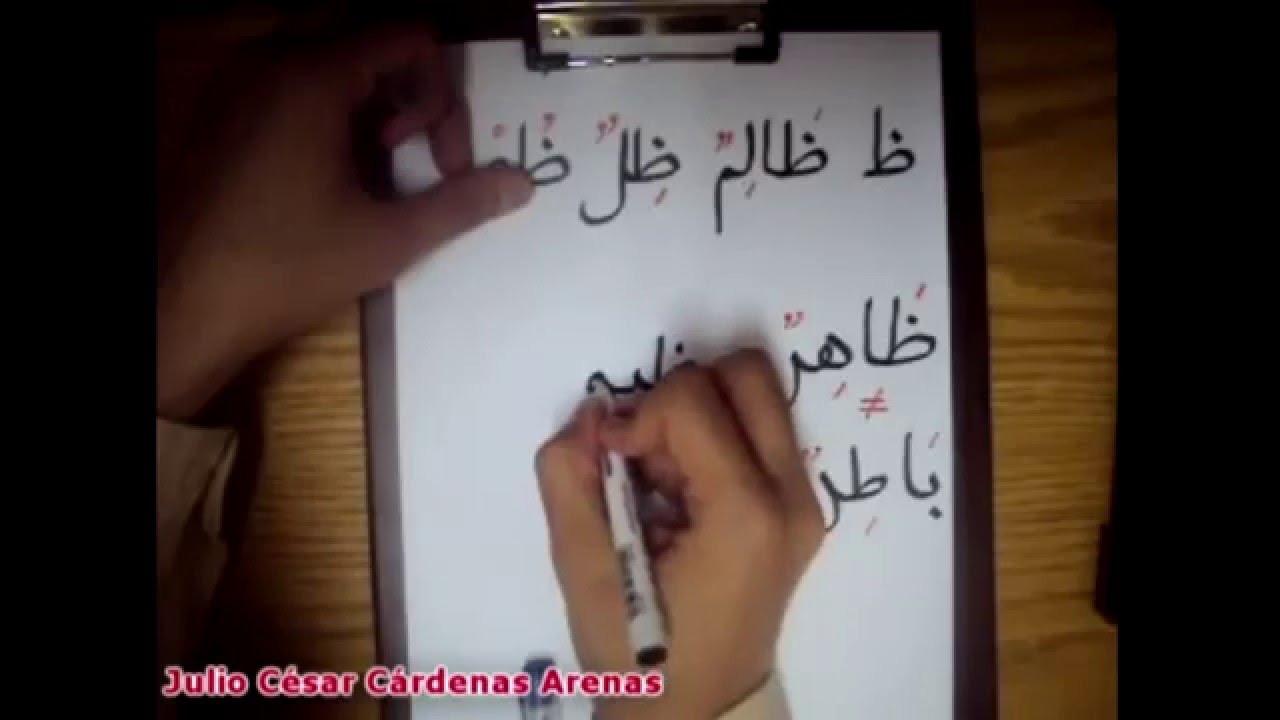 ظ ظَالِمٌ ظِلٌّ
ظَاهِرٌ
≠
بَاطِ
Julio César Cárdenas Arenas